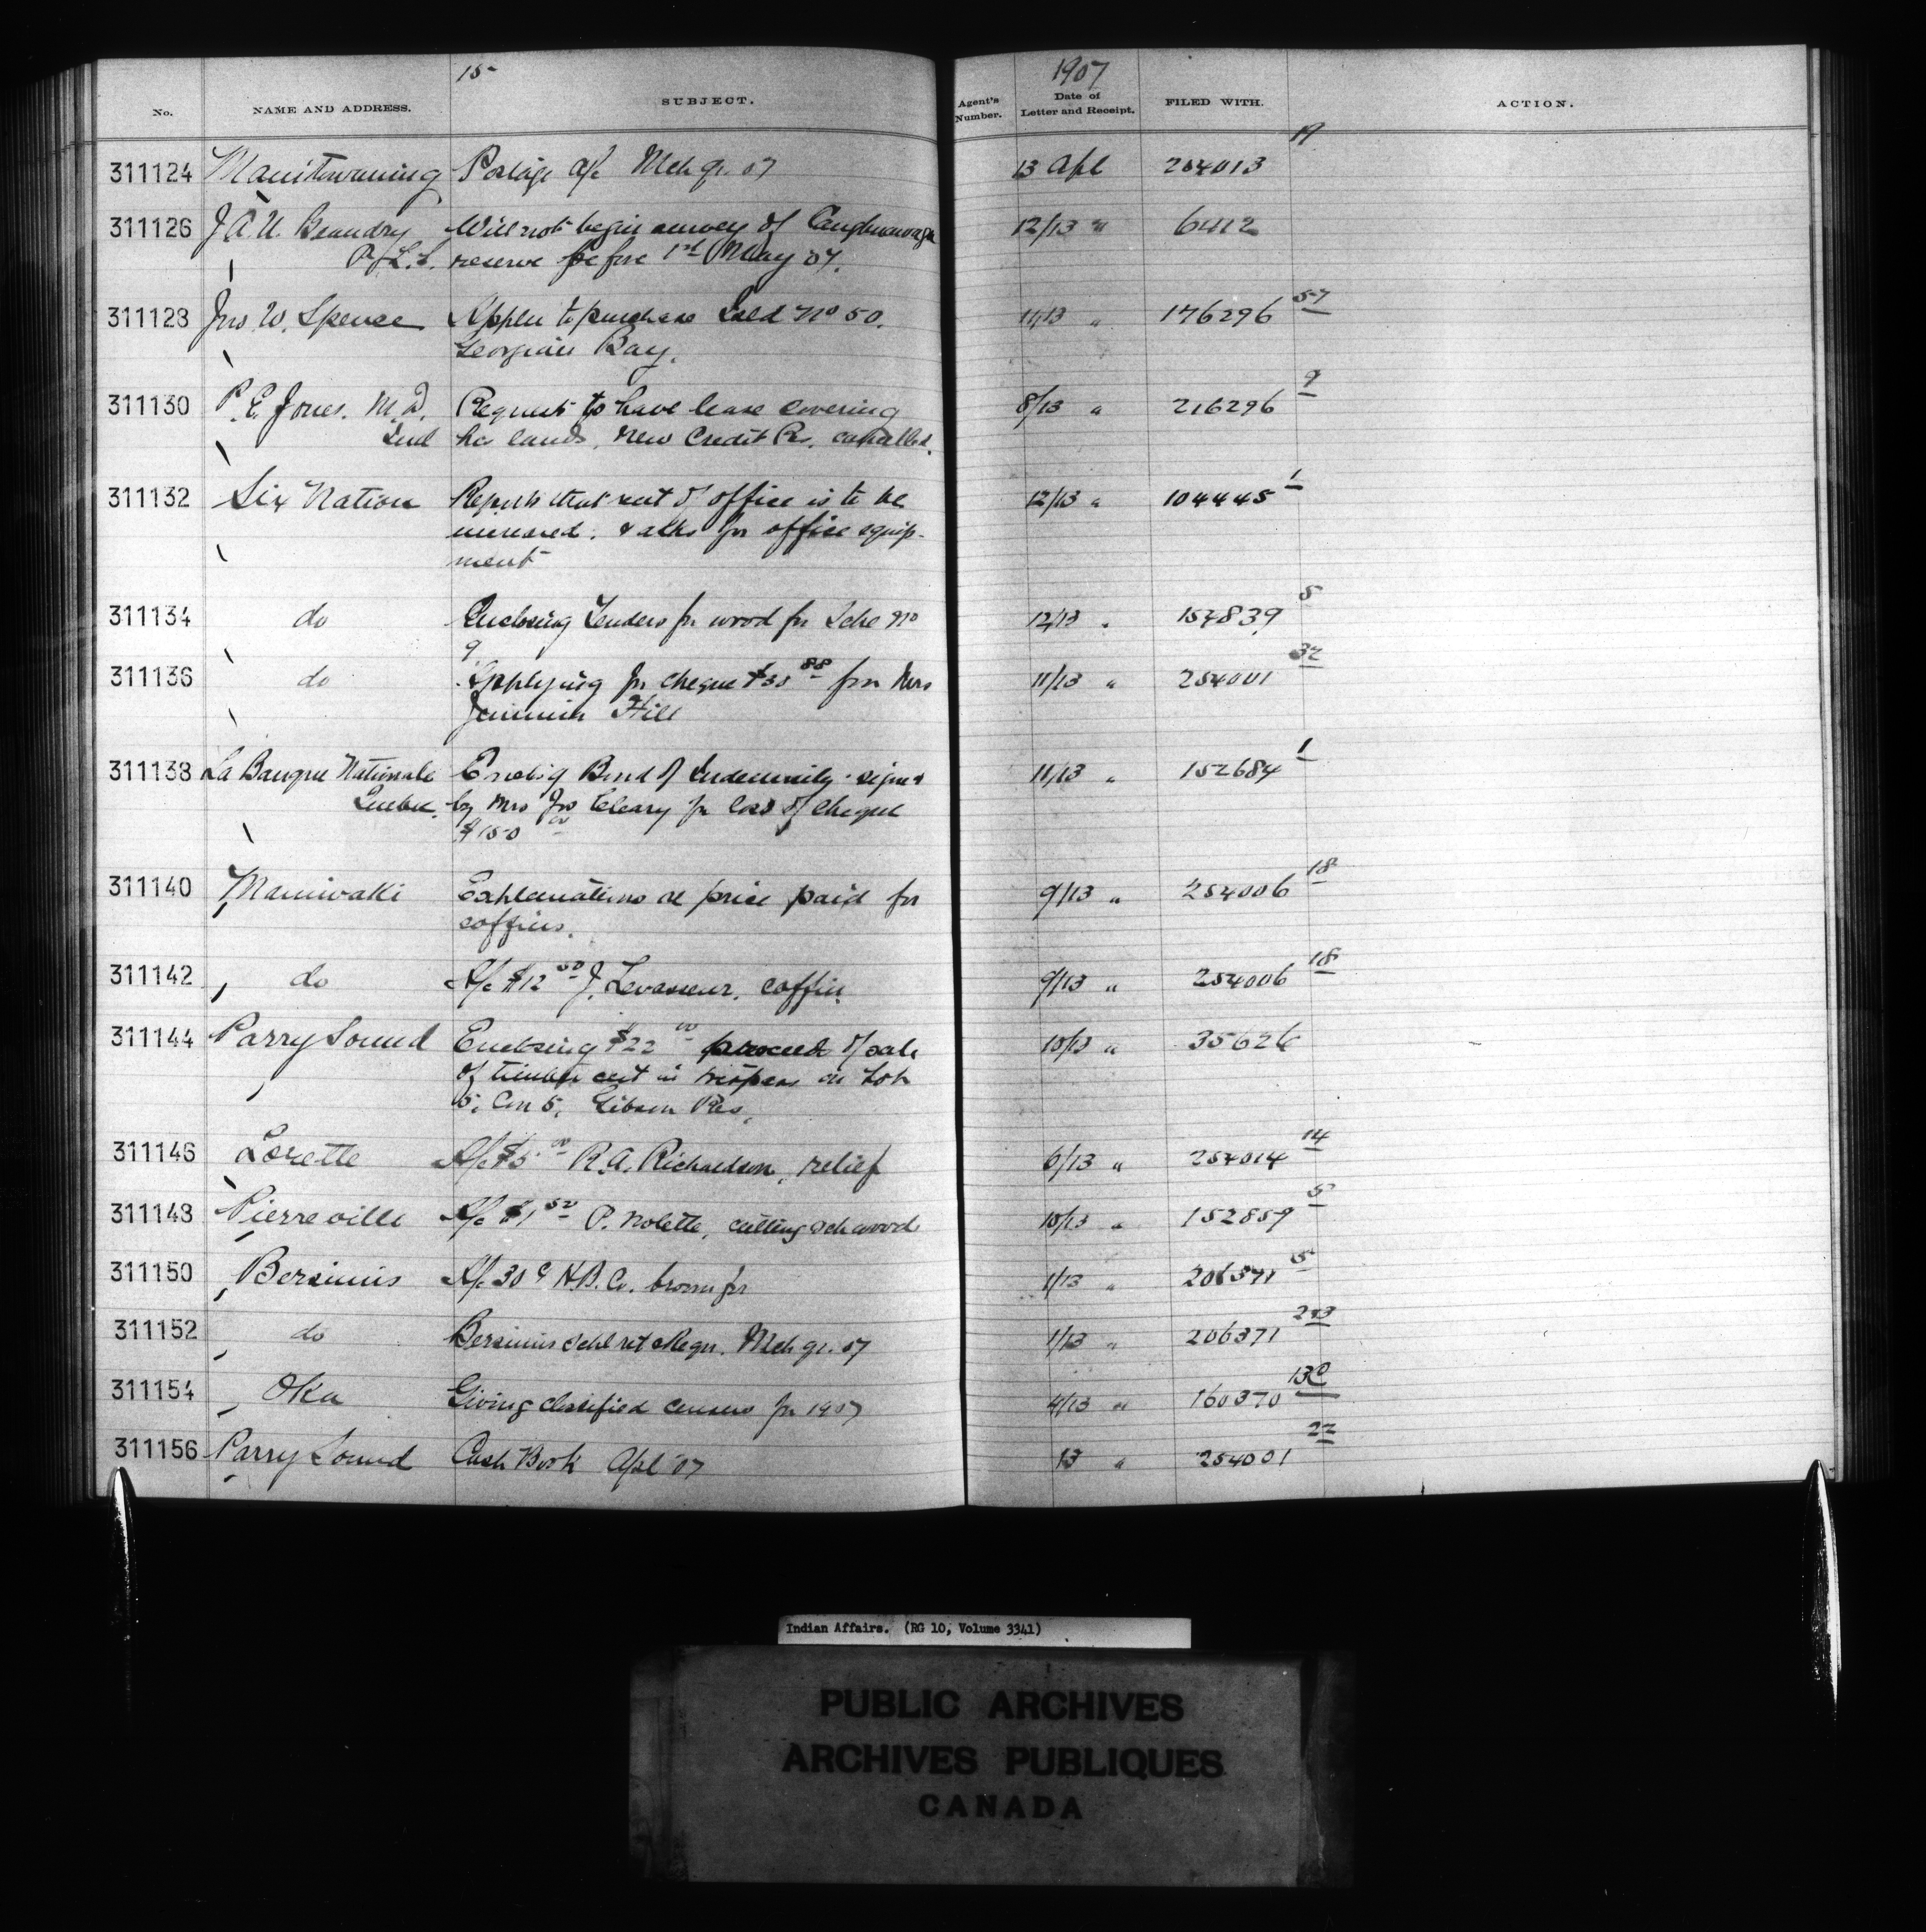 15
1907
No. NAME AND ADDRESS. SUBJECT. Agent's Number. Date of Letter and Receipt. FILED WITH. ACTION.
311124 Manitowaning Postage a/c Mch qr. 07 13 Apl 254013 19
311126 J.A.U. Beaudry Will not begin survey of Caughnawaga 12/13 " 6412
P.L.S. reserve before 1st May 07.
311128 Jno. W. Spence Applen to purchase Isld No 50. 11/13 " 176296 57
Georgian Bay.
311130 P.E. Jones. M.D. Request to have lease covering 8/13 " 216296 9
his lands, New Credit Res. cancelled.
311132 Six Nation Reports that rent of office is to be 12/13 " 104445 1
increased. & asks for office equip-
ment
311134 do Enclosing Tenders for wood for Schl No 12/13 " 157839 5
9
311136 do Applying for cheque $30 88 for Mrs 11/13 " 254001 32
Jemimih Hill
311138 La Banque Nationale Enclosig Bond of Indemnity signed 11/13 " 152684 1
Quebec. by Mrs Jno Cleary for loss of cheque
$150 00
311140 Maniwaki Explanations re price paid for 9/13 " 254006 18
coffins.
311142 do A/c $12 50 J. Levasseur. coffin. 9/13 " 254006 18
311144 Parry Sound Enclosing $22 00 proceed of sale 10/13 " 35626
of timber cut in trespass on Lot
5, Con 5, Gibson Res.
311146 Lorette A/c $5 00 R.A. Richardson, relief 6/13 " 254014 14
311148 Pierreville A/c $1 50 P. Nolette, cutting sch wood 10/13 " 152859 5
311150 Bersimis A/c 30 c H.B. Co. broom for 1/13 " 206371 5
311152 do Bersimis Schl ret & Regn. Mch qr. 07 1/13 " 206371 2
311154 Oka Giving classified census for 1907 4/13 " 160370 13C
311156 Parry Sound Cash Book Apl 07 13 " 254001 22
Indian Affairs. (RG 10, Volume 3341)
PUBLIC ARCHIVES
ARCHIVES PUBLIQUES
CANADA